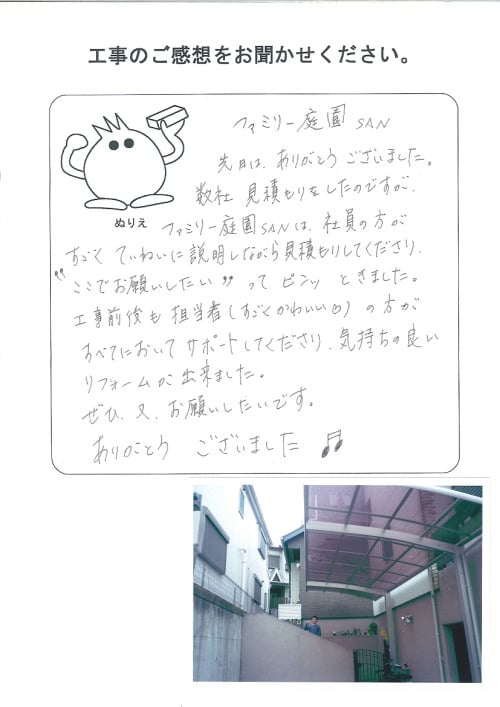 工事のご感想をお聞かせください。
ファミリー庭園SAN
先日は、ありがとうございました。
数社 見積もりをしたのですが、
ぬりえ
ファミリー庭園SANは、社員の方が
すごく ていねいに説明しながら見積もりしてくださり、
"ここでお願いしたい" って ピンッ ときました。
工事前後も 担当者(すごくかわいい♡) の方が
すべてにおいて サポートしてくださり、気持ちの良い
リフォームが出来ました。
ぜひ、又、お願いしたいです。
ありがとう ございました ♫